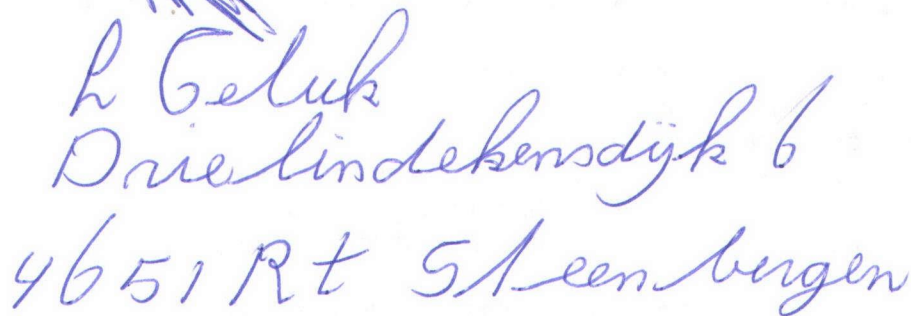 L Geluk
Drielindekensdijk 6
4651 Rt Steenbergen